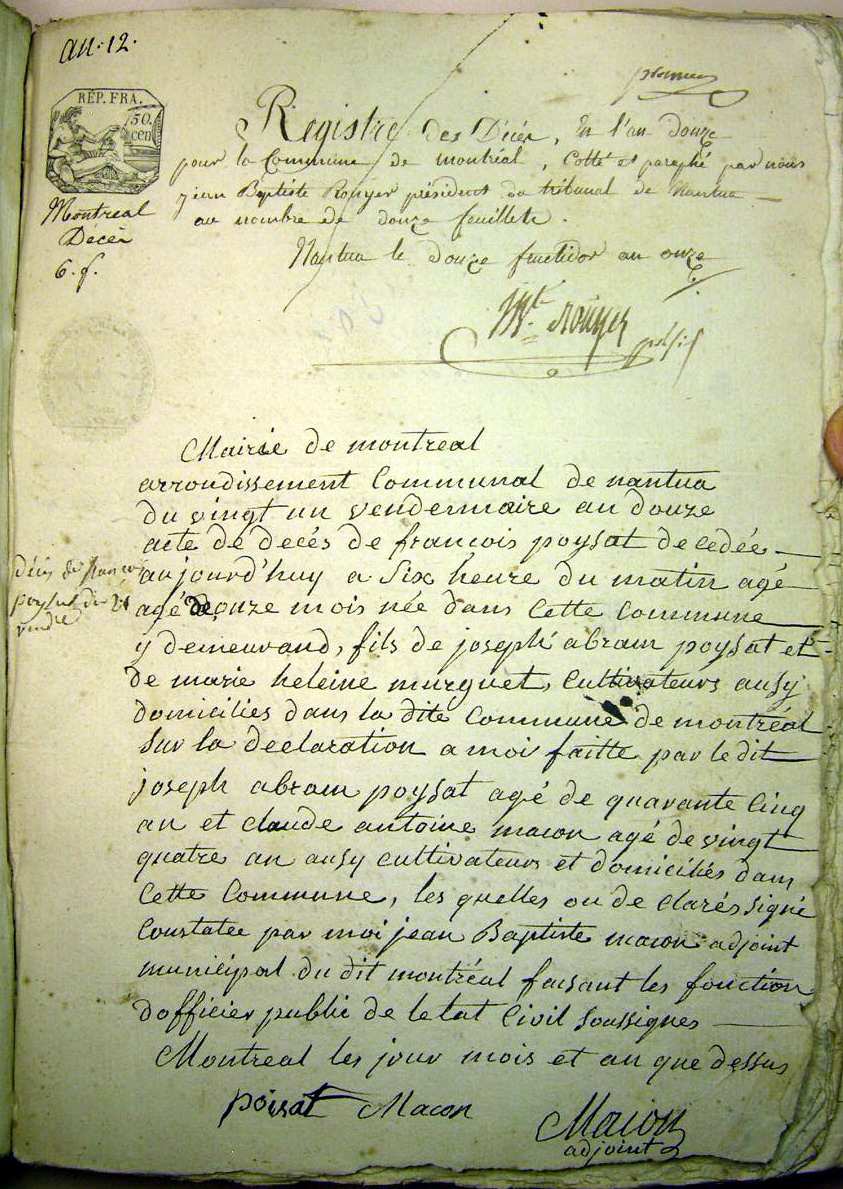 an. 12.
REP. FRA.
50.
cen
Registre des Décès, En l'an douze
pour la Commune de montréal, Cotté et paraphé par nous
jean Baptiste Rouyer président du tribunal de Nantua
au nombre de douze feuillets.
Nantua le douze fructidor an onze
Montreal
Décès
6. f.
Rouyer
Mairie de montreal
arroudissement Communal de nantua
du vingt un vendermaire an douze
acte de decés de francois poysat decedée
aujourd'huy a Six heure du matin agé
agé de onze mois née dans Cette Commune
y demeurand, fils de joseph abram poysat et
de marie heleine murguet, Cultivateurs ausy
domiciliés dans la dite Commune de montréal
Sur la declaration a moi faitte par le dit
joseph abram poysat agé de quarante Cinq
an et claude antoine macon agé de vingt
quatre an ausy cultivateurs et domiciliés dans
Cette Commune, les quelles on de clarés signé
Constatée par moi jean Baptiste macon adjoint
municipal du dit montréal faisant les fonction
dofficier public de letat Civil Soussignes
Montreal les jour mois et an que dessus
décès de francois
poysat du 21
vendre
poisat Macon
Macon
adjoint